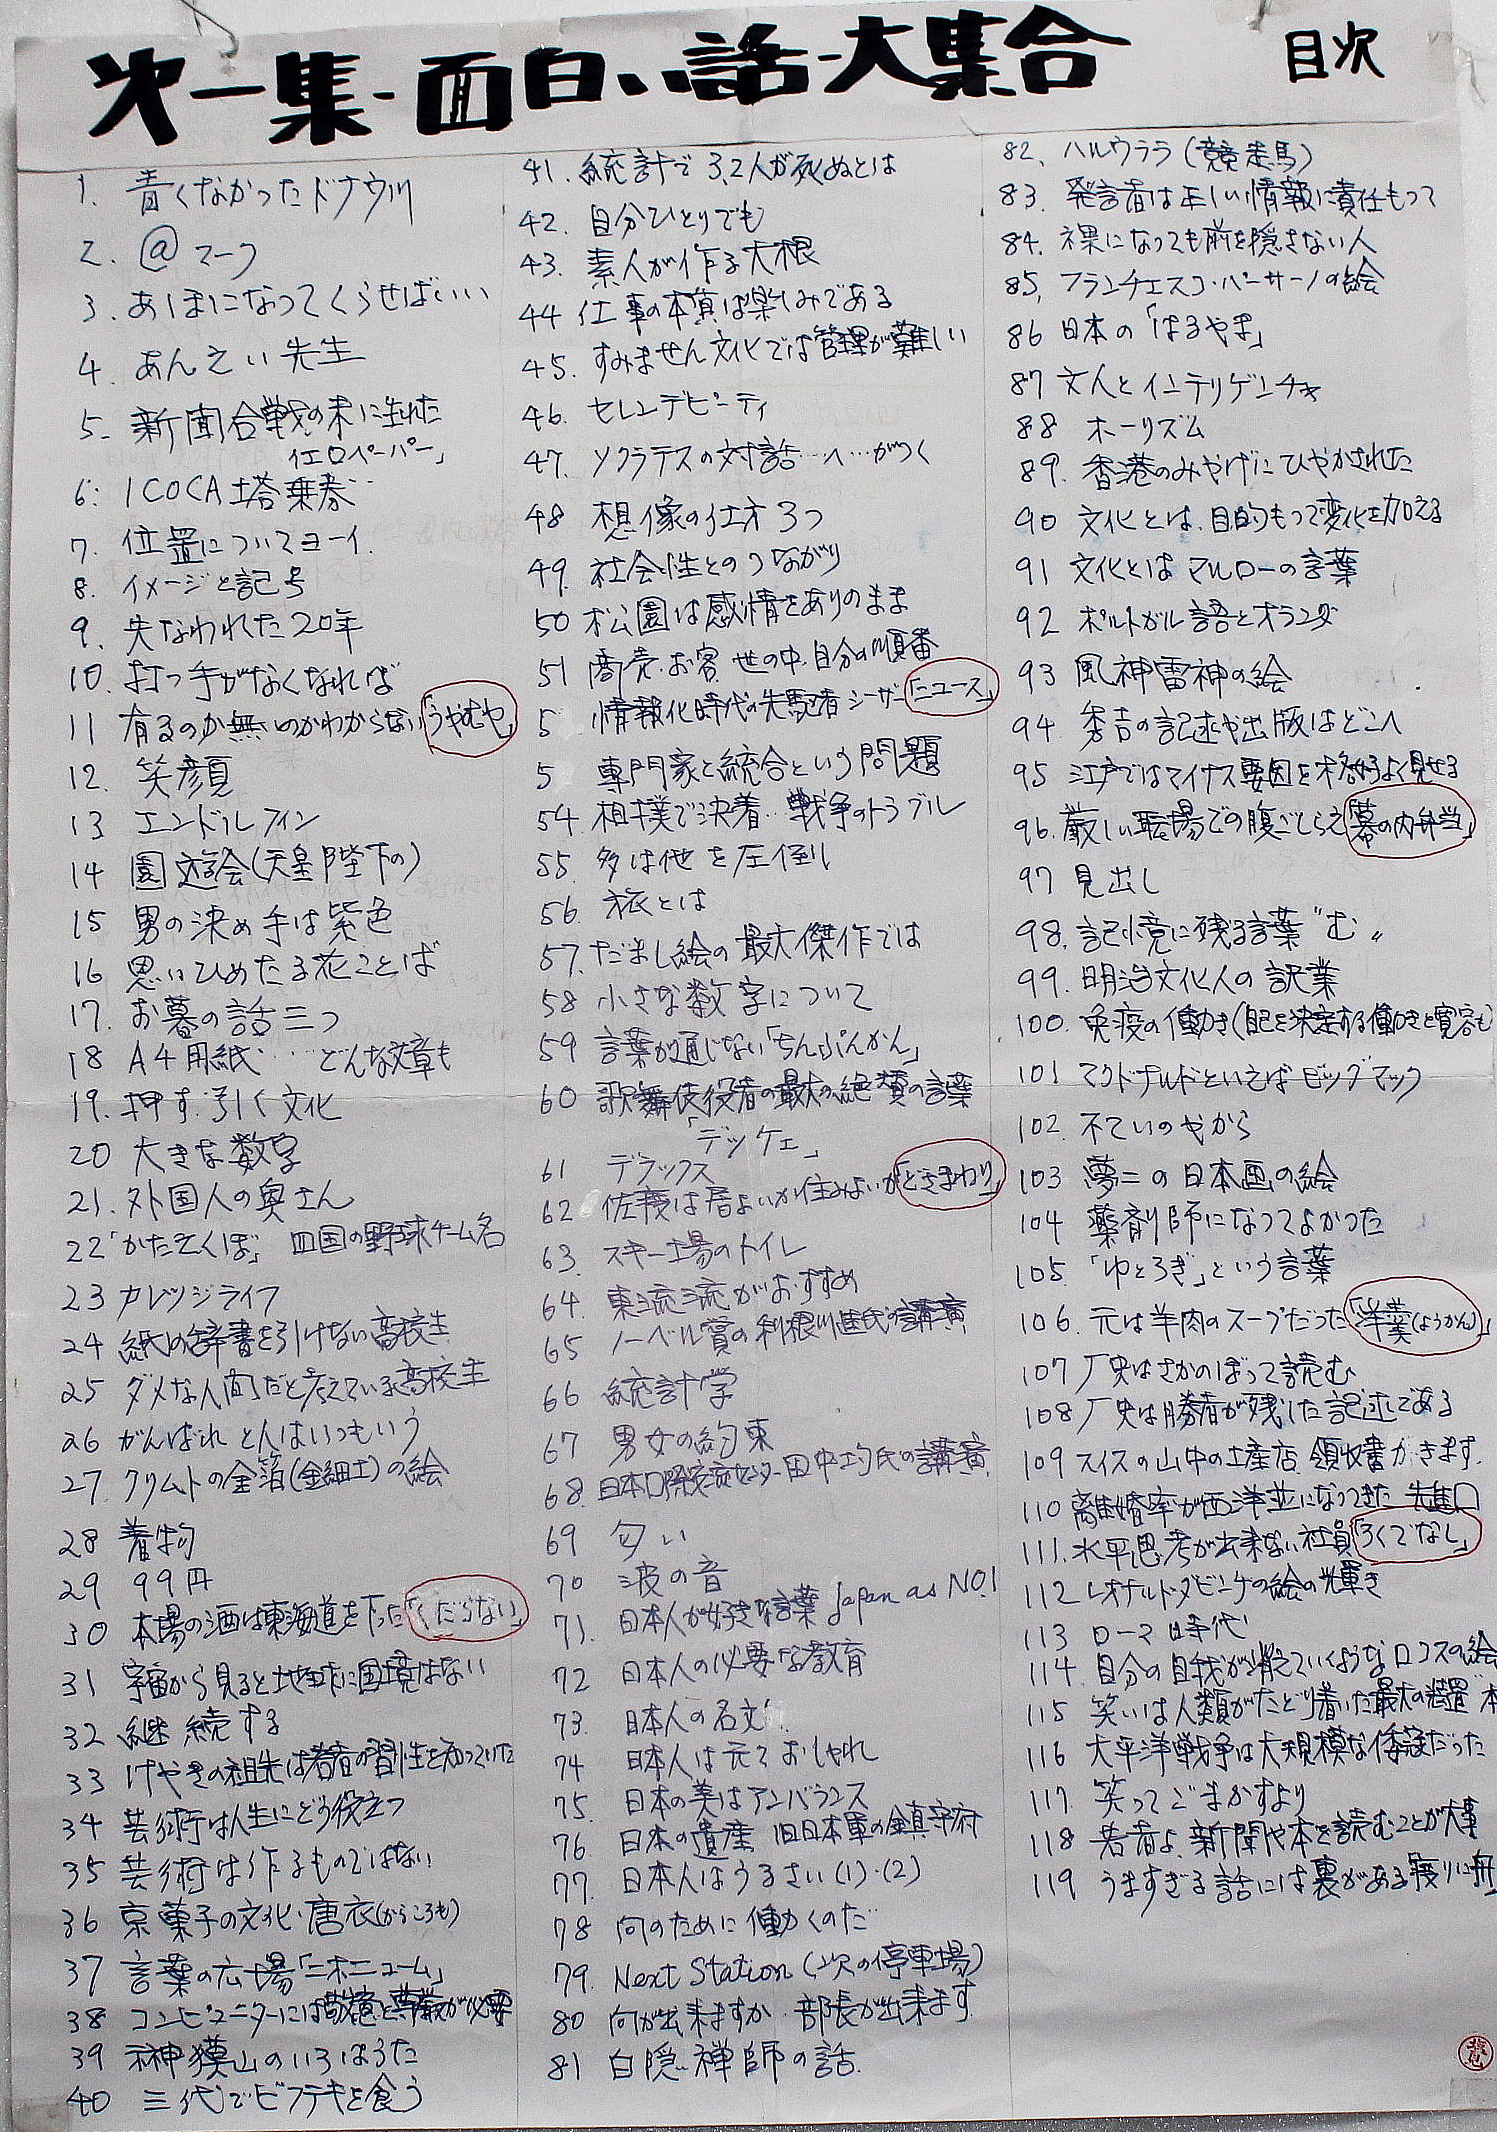 次一集-面白い話-大集合
目次
1. 青くなかったドナウ川
2. @マーク
3. あほになってくらせばいい
4. あんえい先生
5. 新聞合戦の末に生れた
イエロペーパー」
6. ICOCA 搭乗券‥
7. 位置についてヨーイ.
8. イメージと記号
9. 失なわれた20年
10. 打つ手がなくなれば
11 有るのか無いのかわからない「うやむや」
12. 笑顔
13 エンドルフィン
14 園遊会(天皇陛下の)
15 男の決め手は紫色
16 思いひめたる花ことば
17. お墓の話三つ
18 A4用紙……どんな文章も
19. 押す.引く文化
20 大きな数字
21. 外国人の奥さん
22「かたえくぼ」 四国の野球チーム名
23 カレッジライフ
24 紙の辞書を引けない高校生
25 ダメな人間だと考えている高校生
26 がんばれと人はいつもいう
27. クリムトの金箔(金細工)の絵
28 着物
29 99円
30 本場の酒は東海道を下った「くだらない」
31 宇宙から見ると地球に国境はない
32 継続する
33 けやきの祖先は若者の習性を知っていた
34 芸術は人生にどう役立つ
35 芸術は作るものではない
36 京菓子の文化・唐衣(からころも)
37 言葉の広場「ニホニューム」
38 コンピューターには敬意と尊厳が必要
39 神獏山のいろはうた
40 三代でビフテキを食う
41. 統計で3.2人が死ぬとは
42. 自分ひとりでも
43. 素人が作る大根
44 仕事の本質は楽しみである
45. すみません文化では管理が難しい
46. セレンデピーティ
47. ソクラテスの対話…へ…がつく
48 想像の仕方3つ
49. 社会性とのつながり
50 公園は感情をありのまま
51 商売.お客.世の中.自分の順番
5 情報化時代の先駆者シーザー「ニュース」
5 専門家と統合という問題
54. 相撲で決着…戦争のトラブル
55. 多は他を圧倒し
56. 旅とは
57. だまし絵の最大傑作では
58 小さな数字について
59 言葉が通じない「ちんぷんかん」
60 歌舞伎役者の最大の絶賛の言葉
「デッケェ」
61 デラックス
62 佐渡は居よいか住みよいか「どさまわり」
63. スキー場のトイレ
64. 東流流がおすすめ
65 ノーベル賞の利根川進氏の講演
66 統計学
67 男女の約束
68. 日本国際交流センター 田中 氏の講演
69 匂い
70 波の音
71. 日本人が好きな言葉 Japan as NO.1
72 日本人の必要な教育
73. 日本人の名文
74 日本人は元々おしゃれ
75. 日本の美はアンバランス
76. 日本の遺産 旧日本軍の鎮守府
77. 日本人はうるさい(1)・(2)
78 何のために働くのだ
79. Next Station (次の停車場)
80 何が出来ますか.部長が出来ます.
81 白隠禅師の話.
82. ハルウララ(競走馬)
83. 発言者は正しい情報に責任もって
84. 裸になっても前を隠さない人
85. フランチェスコ・バーサーノの絵
86 日本の「はるやま」
87 文人とインテリゲンチャ
88 ホーリズム
89. 香港のみやげにひやかされた
90 文化とは.目的もって変化を加える
91 文化とはマルローの言葉
92 ポルトガル語とオランダ
93 風神雷神の絵
94 秀吉の記述や出版はどこへ
95 江戸ではマイナス要因を格好よく見せる
96. 厳しい職場での腹ごしらえ「幕の内弁当」
97 見出し
98. 記憶に残る言葉“む〃
99. 明治文化人の訳業
100. 免疫の働き(自己を決定する働きと寛容も
101 マクドナルドといえばビッグマック
102. 不ていのやから
103 夢二の日本画の絵
104 薬剤師になってよかった
105. 「ゆとろぎ」という言葉
106. 元は羊肉のスープだった「羊羹(ようかん)」
107 厂史はさかのぼって読む
108 厂史は勝者が残した記述である
109 スイスの山中の土産店.領収書がきます.
110 離婚率が西洋並になってきた 先進国
111. 水平思考が出来ない社員「ろくでなし」
112 レオナルド・ダビンチの絵の輝き
113 ローマ時代
114. 自分の自我が消えていくようなロコスの絵
115 笑いは人類がたどり着いた最大の装置"本
116 太平洋戦争は大規模な倭寇だった
117. 笑ってごまかすより
118 若者よ.新聞や本を読むことが大事
119 うますぎる話には裏がある 渡りに舟」